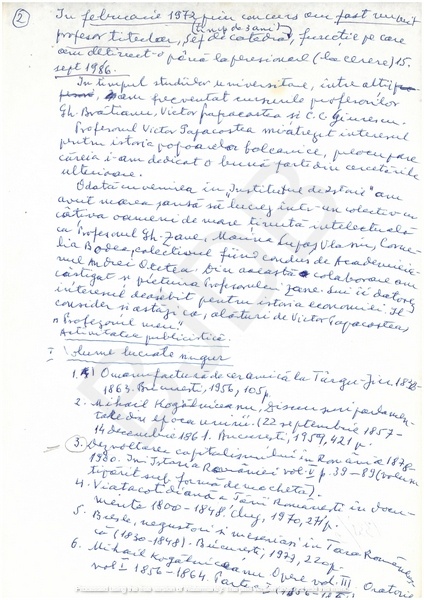 2
În februarie 1972 prin concurs am fost numit
(timp de 3 ani)
profesor titular, șef de catedră, funcție pe care
am deținut-o până la pensionare (la cerere) 15.
sept 1986.
În timpul studiilor universitare, între alții
am frecventat cursurile profesorilor
Gh. Brătianu, Victor Papacostea și C.C. Giurescu.
Profesorul Victor Papacostea mi-a trezit interesul
pentru istoria popoarelor balcanice, preocupare
căreia i-am dedicat o bună parte din cercetările
ulterioare.
Odată cu venirea în "Institutul de Istorie" am
avut marea șansă să lucrez într-un colectiv cu
câțiva oameni de mare ținută intelectuală
ca Profesorul Gh. Zane, Marina Lupaș Vlasiu, Corne-
lia Bodea, colectivul fiind condus de Academicia-
nul Andrei Oțetea. Din această colaborare am
câștigat și prietenia Profesorului Zane. Lui îi datorez
interesul deosebit pentru istoria economiei. Îl
consider și astăzi ca, alături de Victor Papacostea,
"Profesorul meu".
Activitatea publicistică.
I Volume lucrate singur
1. O manufactură de ceramică la Târgu-Jiu 1832-
1863. București, 1956, 105 p.
2. Mihail Kogălniceanu, Discursuri parlamen-
tare din epoca unirii. (22 septembrie 1857-
14 decembrie 1861. București, 1959, 421 p.
3. Dezvoltarea capitalismului în România 1878-
în Istoria României vol. V p. 39-89 (volum
tipărit sub formă de machetă).
4. Viața cotidiană a Țării Românești în docu-
mente 1800-1848, Cluj, 1970, 271 p.
5. Bresle, negustori și meseriași în Țara Româneas-
că (1830-1848). București, 1973, 220 p.
6. Mihail Kogălniceanu. Opere vol. III. Oratorie
vol. I 1856-1864. Partea I (1856-